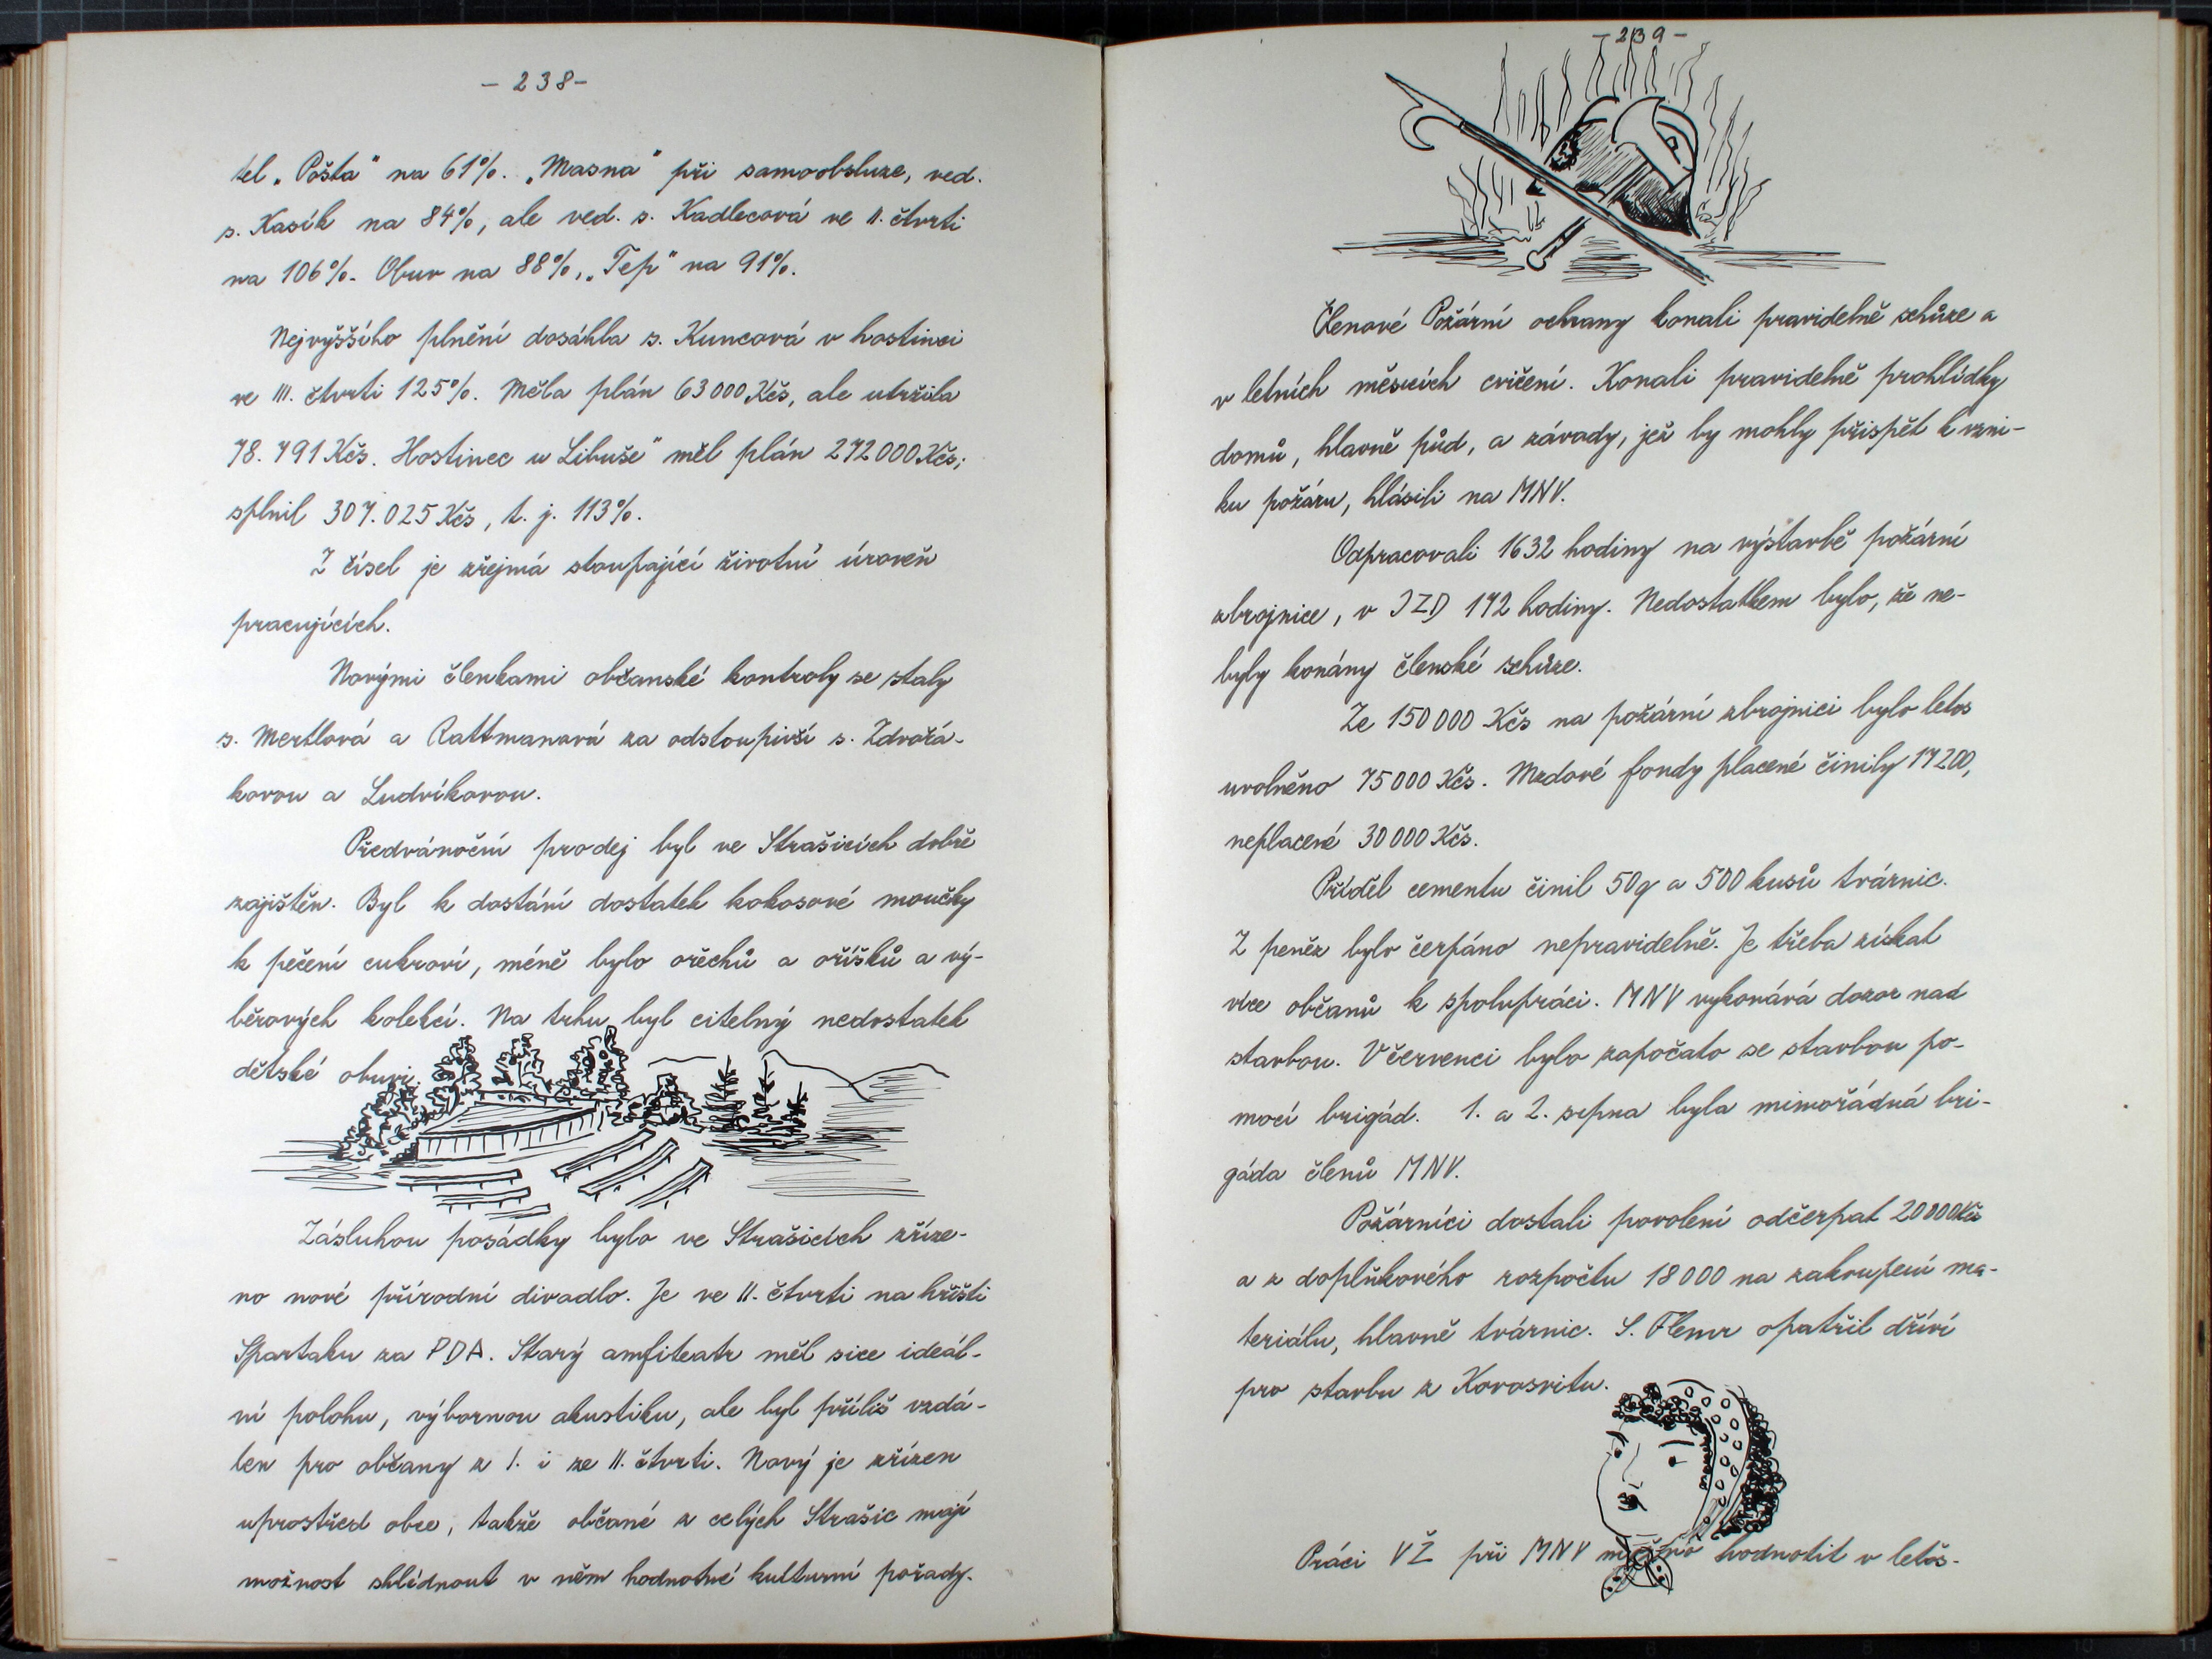 - 238 -
tel „Pošta" na 61%. „Masna" při samoobsluze, ved.
s. Kasík na 84%, ale ved. s. Kadlecová ve II. čtvrti
na 106%. Obuv na 88%, „Tep" na 91%.
Nejvyššího plnění dosáhla s. Kuncová v hostinci
ve III. čtvrti 125%. Měla plán 63000 Kčs, ale utržila
78.791 Kčs. Hostinec u Libuše" měl plán 272000 Kčs;
splnil 307.025 Kčs, t. j. 113%.
Z čísel je zřejmá stoupající životní úroveň
pracujících.
Novými členkami občanské kontroly se staly
s. Mertlová a Rattmanová za odstoupivší s. Zdvořá-
kovou a Ludvíkovou.
Předvánoční prodej byl ve Strašicích dobře
zajištěn. Byl k dostání dostatek kokosové moučky
k pečení cukroví, méně bylo ořechů a oříšků a vý-
běrových kolekcí. Na trhu byl citelný nedostatek
dětské obuvi.
Zásluhou posádky bylo ve Strašicích zříze-
no nové přírodní divadlo. Je ve II. čtvrti na hřišti
Spartaku za PDA. Starý amfiteatr měl sice ideál-
ní polohu, výbornou akustiku, ale byl příliš vzdá-
len pro občany z I. i ze II. čtvrti. Nový je zřízen
uprostřed obce, takže občané z celých Strašic mají
možnost shlédnout v něm hodnotné kulturní pořady.
- 239 -
Členové Požární ochrany konali pravidelně schůze a
v letních měsících cvičení. Konali pravidelně prohlídky
domů, hlavně půd, a závady, jež by mohly přispět k vzni-
ku požáru, hlásili na MNV.
Odpracovali 1632 hodiny na výstavbě požární
zbrojnice, v JZD 172 hodiny. Nedostatkem bylo, že ne-
byly konány členské schůze.
Ze 150000 Kčs na požární zbrojnici bylo letos
uvolněno 75000 Kčs. Mzdové fondy placené činily 17200,
neplacené 30000 Kčs.
Příděl cementu činil 50q a 500 kusů tvárnic.
Z peněz bylo čerpáno nepravidelně. Je třeba získat
více občanů k spolupráci. MNV vykonává dozor nad
stavbou. V červenci bylo započato se stavbou po-
mocí brigád. 1. a 2. srpna byla mimořádná bri-
gáda členů MNV.
Požárníci dostali povolení odčerpat 20000 Kčs
a z doplňkového rozpočtu 18000 na zakoupení ma-
teriálu, hlavně tvárnic. S. Flemr opatřil dříví
pro stavbu z Kovosvitu.
Práci VŽ při MNV možno hodnotit v letoš-